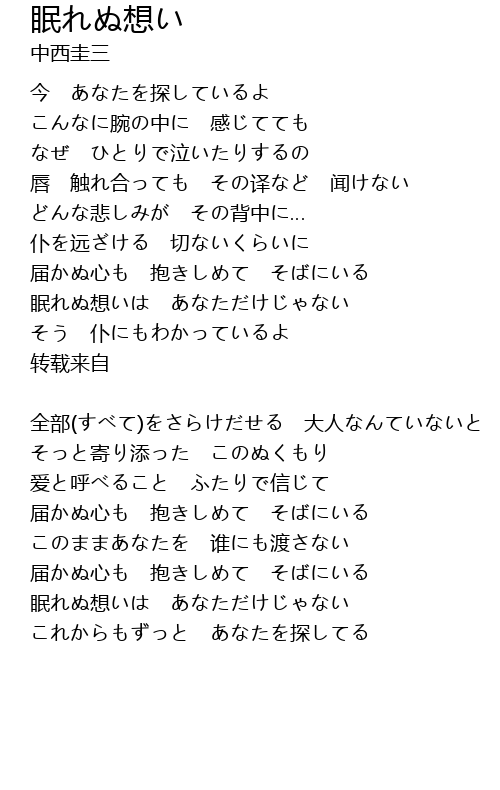 眠れぬ想い
中西圭三
今　あなたを探しているよ
こんなに腕の中に　感じてても
なぜ　ひとりで泣いたりするの
唇　触れ合っても　その译など　闻けない
どんな悲しみが　その背中に...
仆を远ざける　切ないくらいに
届かぬ心も　抱きしめて　そばにいる
眠れぬ想いは　あなただけじゃない
そう　仆にもわかっているよ
转载来自
全部(すべて)をさらけだせる　大人なんていないと
そっと寄り添った　このぬくもり
爱と呼べること　ふたりで信じて
届かぬ心も　抱きしめて　そばにいる
このままあなたを　谁にも渡さない
届かぬ心も　抱きしめて　そばにいる
眠れぬ想いは　あなただけじゃない
これからもずっと　あなたを探してる